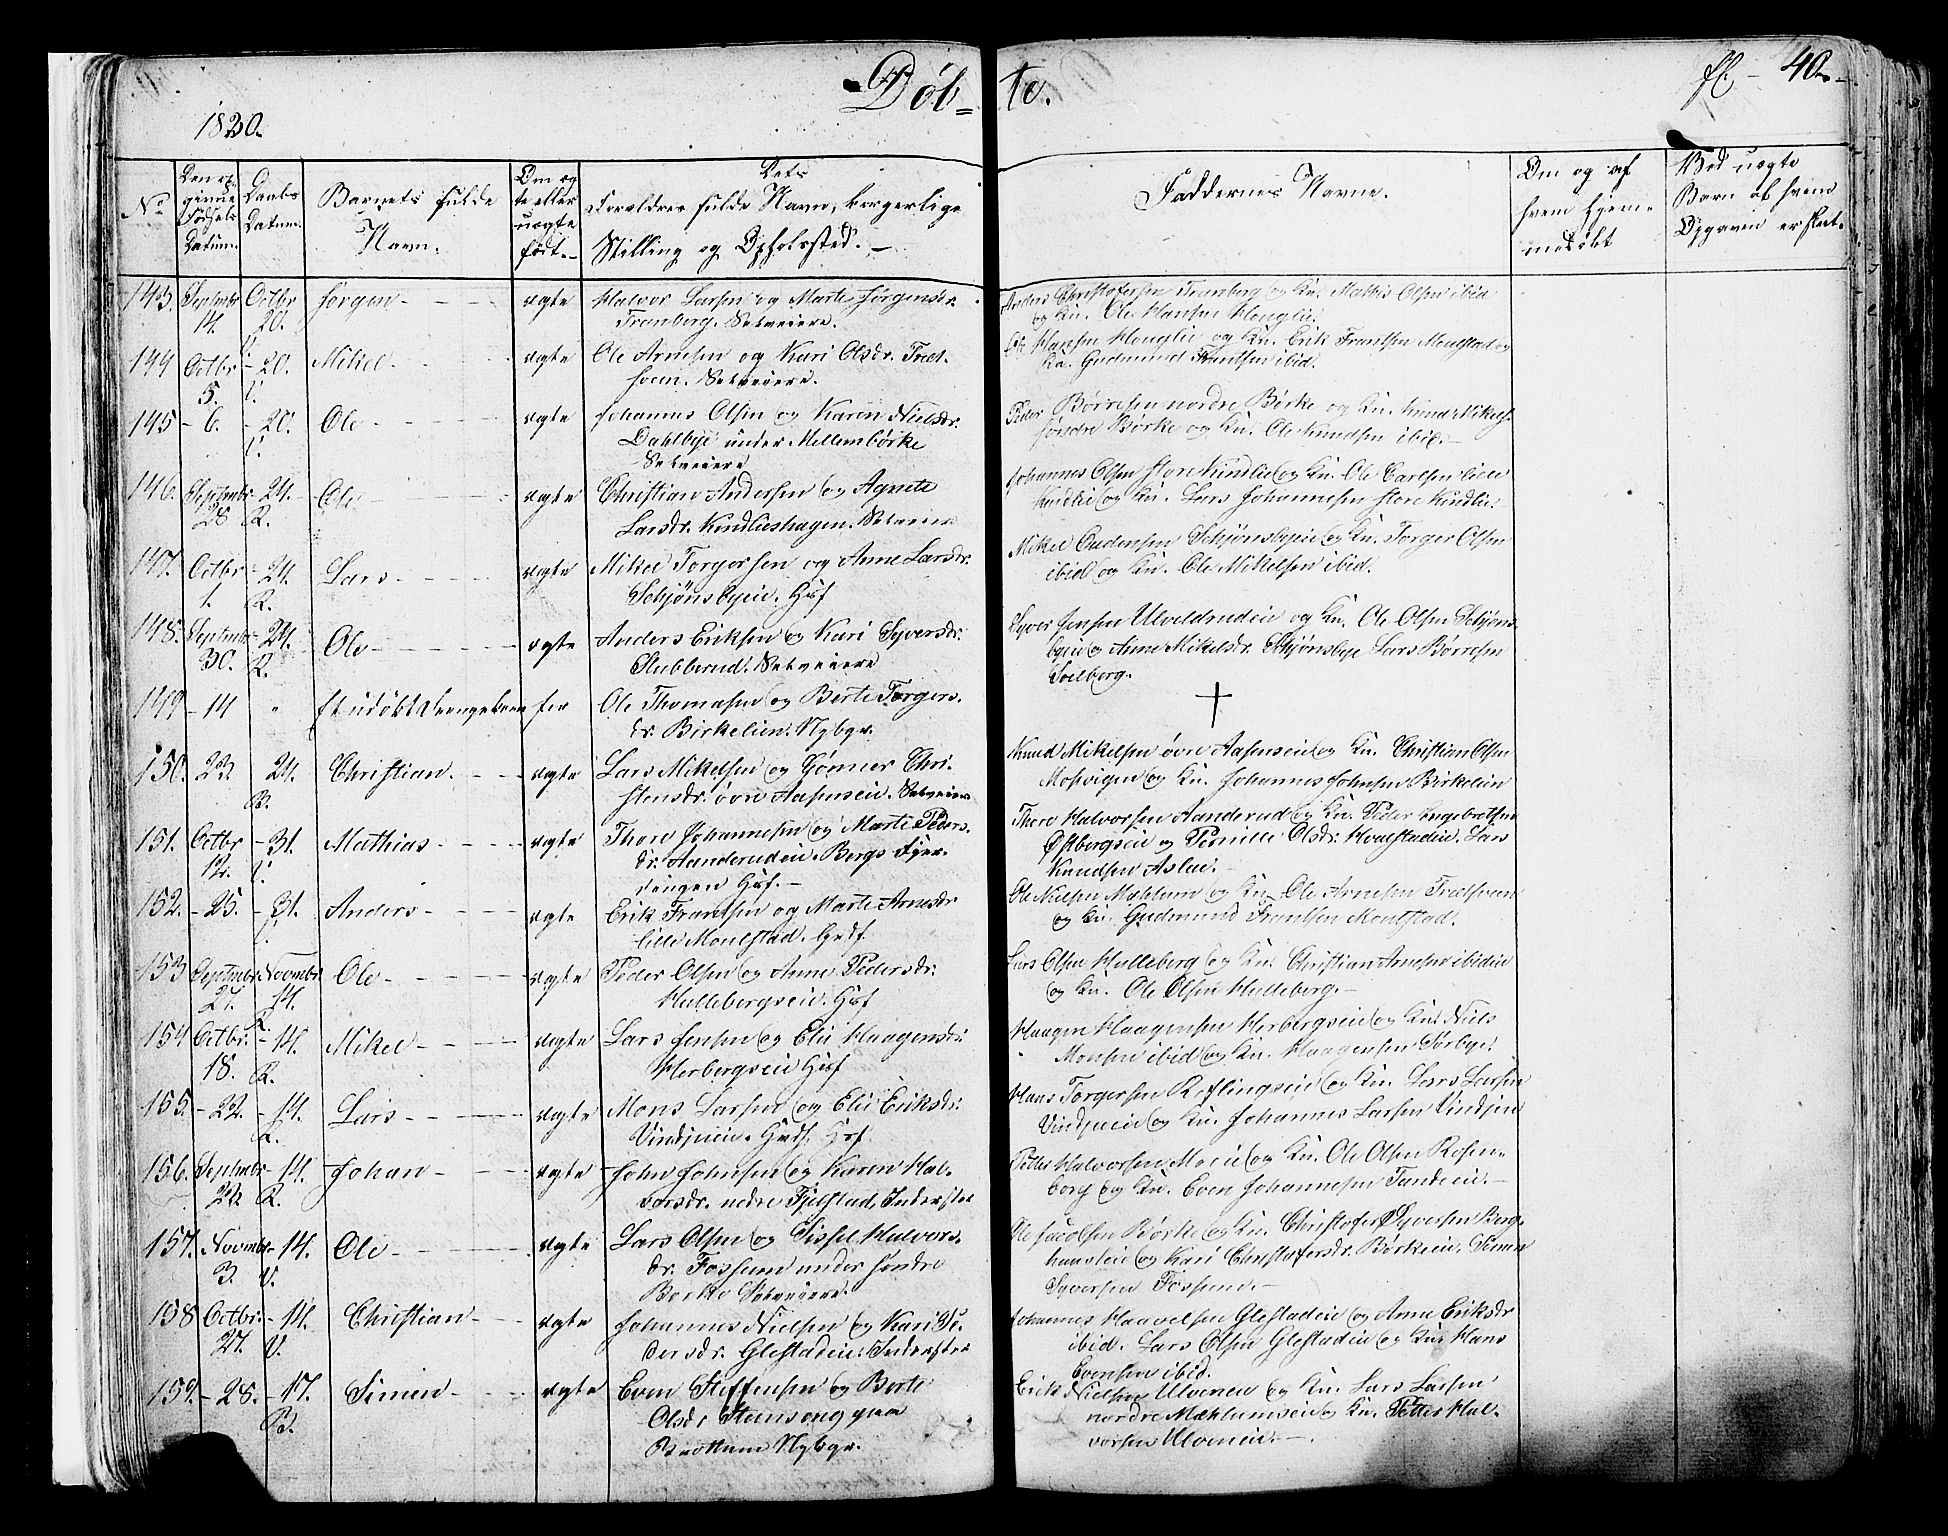 Døb-
te.
fl. - 40.-
1820.
No
Den op-
givne
Fødsels
Datum.
Daabs
Datum.
Barnets fulde
Navn.
Om æg-
te eller
uægte
født.-
Dets
Forældres fulde Navn, borgerlige
Stilling og Opholsted. -
Faddernes Navne.
Om og af
hvem hjem-
medøbt
Ved uægte
Barn af hvem
Opgaven er skeet.
143. Septembr 14. Octbr 20. Jørgen - ægte Halvor Larsen og Marte Jørgensdr.
Tranberg. Selveiere.
Anders Christofersen Tranberg og Kn. Mathis Olsen ibid
og Kn. Ole Hansen Houglie.
144 Octbr 5. - 20. V. Mikel - ægte Ole Arnesen og Kari Olsdr. Træt-
sveen. Selveiere.
Ole Hansen Houglie og Kn. Erik Frantsen Moustad og
Kn. Gudmund Frantsen ibid.
145 - 6. - 20. V. Ole - ægte Johannes Olsen og Karen Nielsdr.
Dahlbye under Mellembørke
Selveiere
Peder Børresen nordre Børke og Kn. Knud Mikels.
søndre Børke og Kn. Ole Knudsen ibid. -
146. Septembr 28 - 24. R. Ole - ægte Christian Andersen og Agnete
Larsdr. Kindlieshagen. Selveiere
Johannes Olsen store Kindlie og Kn. Ole Carlsen lille
Kindlie og Kn. Lars Johannesen store Kindlie.
147. Octbr 1. - 24. R. Lars - ægte Mikel Torgersen og Anne Larsdr.
Schjønsbyeie. Huf
Mikel Gudensen Schjønsbyeie og Kn. Torger Olsen
ibid og Kn. Ole Mikelsen ibid.
148. Septembr 30. - 24. R. Ole - ægte Anders Eriksen og Kari Syversdr.
Stubberud. Selveiere
Syver Jensen Ulveldrudeie og Kn. Ole Olsen Schjøns-
byeie og Anne Mikelsdr. Schjønsbye Lars Børresen
Solberg.
149 - 14 " Et udøbt Drengebarn før Ole Thomasen og Berte Torgers-
dr. Birkelien. Nybgr.
150. - 23. 24. R. Christian. - ægte Lars Mikelsen og Gønner Chri-
stensdr. øvre Aasenseie. Selveiere
Knud Mikelsen øvre Aasenseie og Kn. Christian Olsen
Mosvigen og Kn. Johannes Johnsen Birkelien
151. Octbr 12. - 31. V. Mathias - ægte Thore Johannesen og Marte Peders-
dr. Aanderudeie. Bergs Fjer-
dingen Huf. -
Thore Halvorsen Aanderud og Kn. Peder Ingebretsen
Østbergseie og Pernille Olsdr. Hvalstadeie. Lars
Knudsen Aslae. -
152. - 25. - 31. V. Anders - ægte Erik Frantsen og Marte Arnesdr
lille Moustad. Grdf.
Ole Nielsen Mæhlum og Kn. Ole Arnesen Trætsveen
og Kn. Gudmund Frantsen Moustad.
153 Septembr. 27. Novmbr 14. R. Ole - ægte Peder Olsen og Anne Pedersdr.
Hullebergseie. Huf
Lars Olsen Hulleberg og Kn. Christian Arnesen ibideie
og Kn. Ole Olsen Hulleberg. -
154 Octbr. 18. - 14. R. Mikel - ægte Lars Jensen og Elie Haagensdr.
Herbergseie Huf
Haagen Haagensen Herbergseie og Kn. Niels
Monsen ibid og Kn. Haagensen Sørbye.
155. - 22. - 14. R. Lars - ægte Mons Larsen og Elie Eriksdr.
Vindjueie. Huf.
Hans Torgersen Keflingseie og Kn. Lars Larsen
Vindjueie og Kn. Johannes Larsen Vindjeu
156. Septembr 22 - 14. R. Johan - ægte John Johnsen og Karen Hal-
vorsdr. nedre Fjelstad. Inderster
Petter Halvorsen Moeie og Kn. Ole Olsen Rosen-
borg og Kn. Even Johannesen Tandeie. -
157. Novmbr. 3. - 14. V. Ole - ægte Lars Olsen og Sissel Halvors-
dr. Fossum under søndre
Børke Selveiere.
Ole Jacobsen Børke og Kn. Christofer Syversen Berg-
haugseie og Kari Christofersdr. Børkeeie. Simen
Syversen Fossum. -
158 Octbr. 27. - 14. V. Christian - ægte Johannes Nielsen og Kari Pe-
dersdr. Glestadeie. Inderster
Johannes Haavelsen Glestadeie og Anne Eriksdr
ibid. Lars Olsen Glestadeie og Kn. Hans
Evensen ibid.
159. - 28. - 17. R. Simen - ægte Even Steffensen og Berte
Olsdr Steenseng
Brøttum Nybgr.
Erik Nielsen Ulveneie og Kn. Lars Larsen
nordre Mæhlumseie og Kn. Petter Hal-
vorsen Ulveneie. -